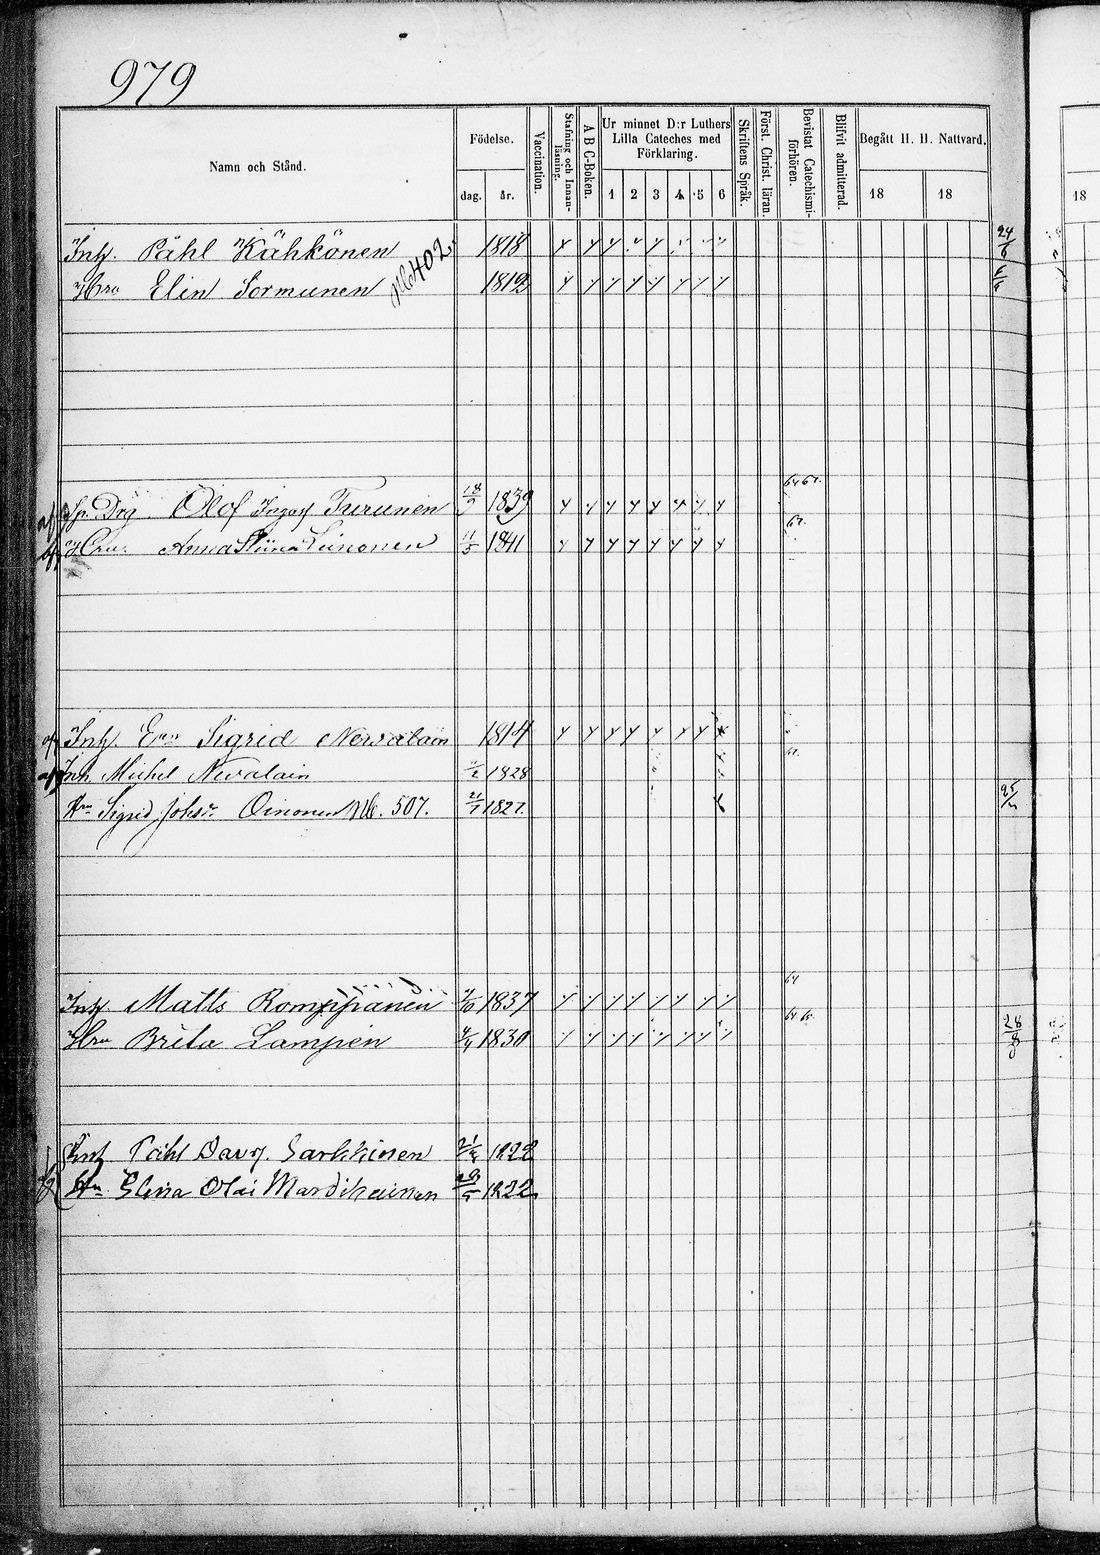 979
Namn och Stånd. Födelse. dag. år. Vaccination. Stafning och Innanläsning. A B C-Boken. Ur minnet D:r Luthers Lilla Cateches med Förklaring. 1 2 3 4 5 6 Skriftens Språk. Först. Christ. läran. Bevistat Catechismiförhören. Blifvit admitterad. Begått H. H. Nattvard. 18 18
18
Inh. Påhl Kähkönen 1818 24/6
Hru Elin Sormunen № 402 1812
Drg Olof Turunen 18/9 1839 64 67.
Hru Anna Stiina Leinonen 11/5 1841 67.
Inh. Sigrid Nevalain 1814
Inh Michel Nevalain 1828
Hru Sigrid Johsdr Oinonen № 507. 21/7 1827.
Inh Matts Romppanen 7/10 1837 64
Hru Brita Lampén 4/4 1830 28/8
Inh Påhl Davj. Sarkkinen 1822
Hru Elina Olai Mardikainen 1822